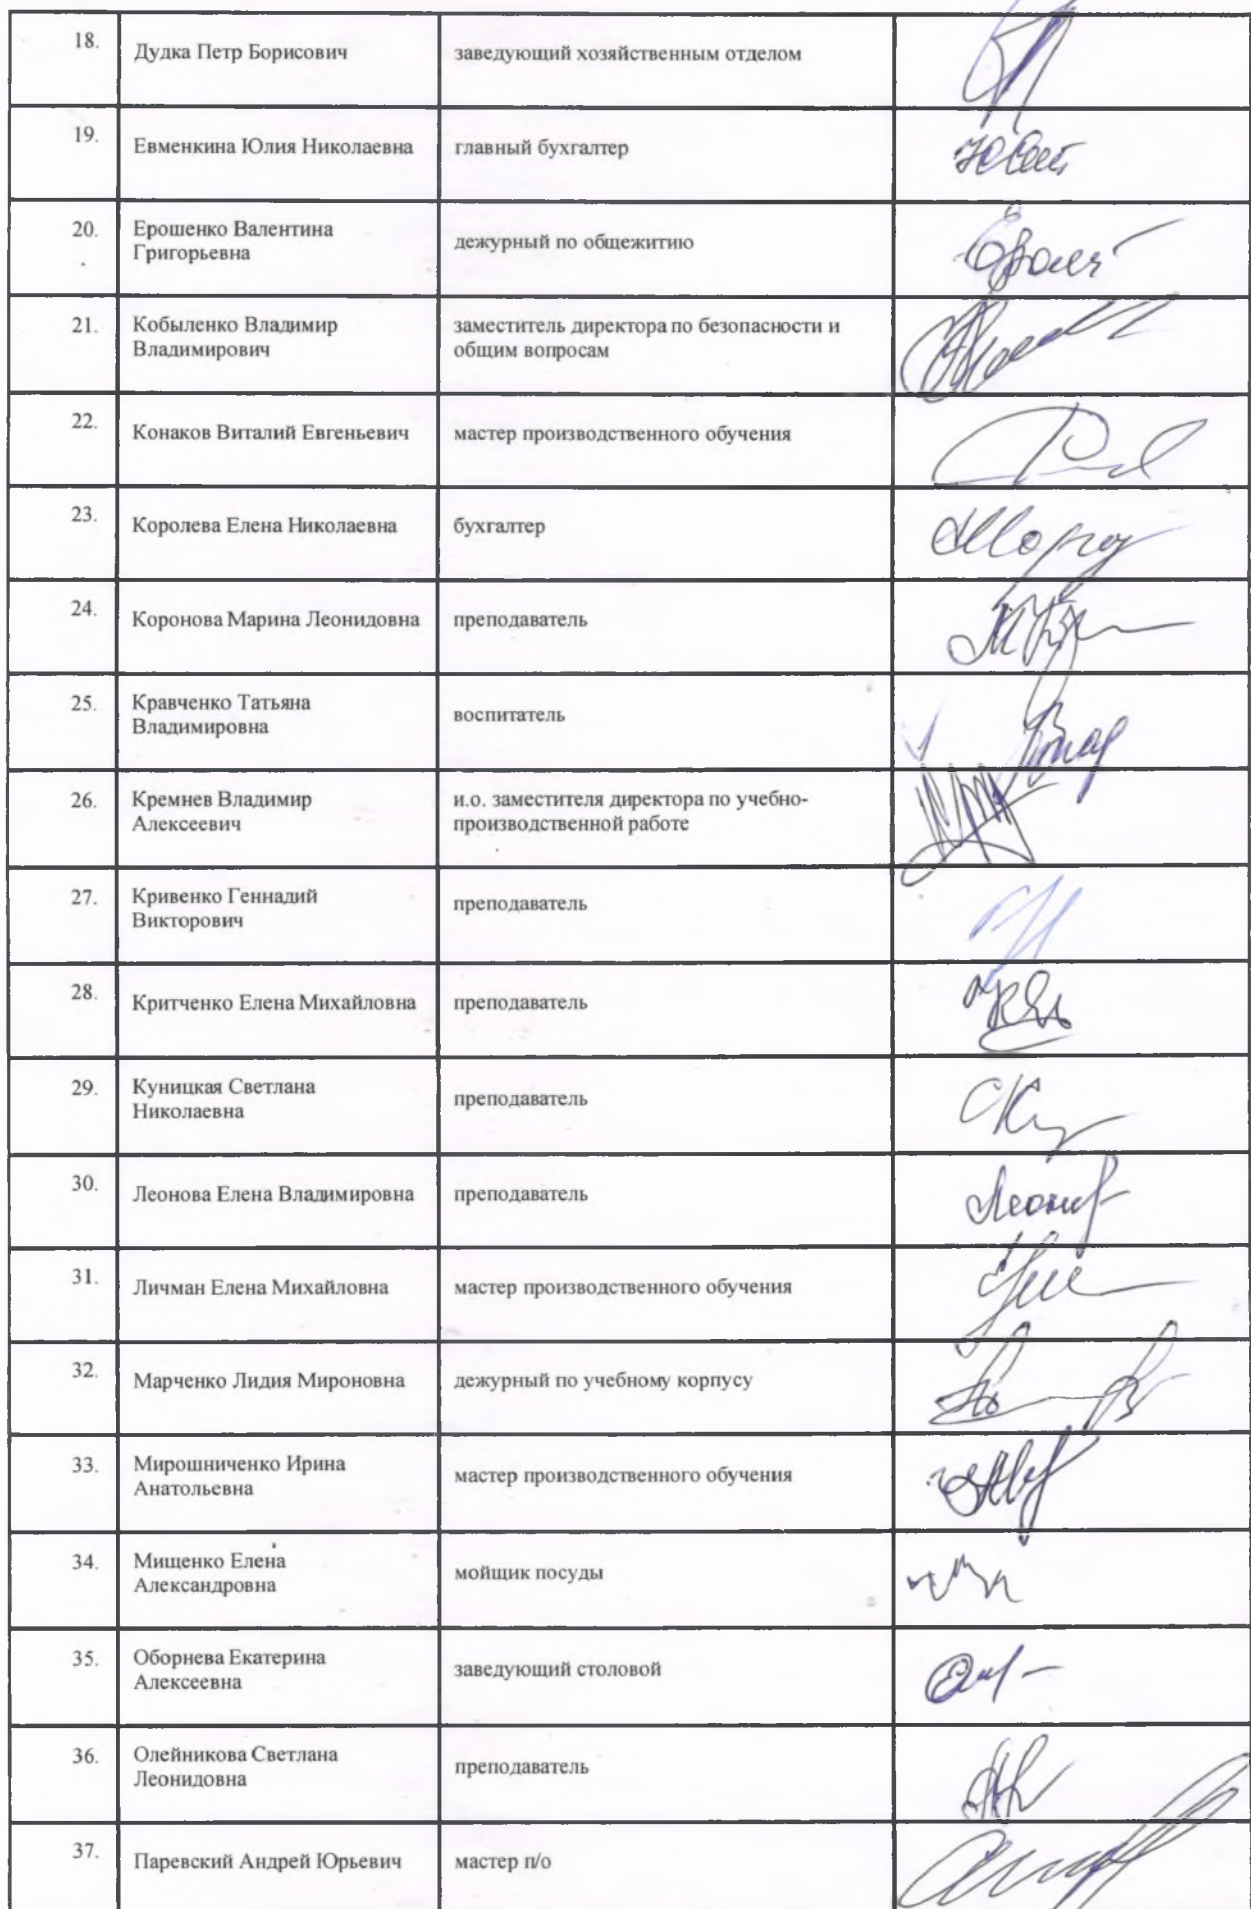 18. Дудка Петр Борисович заведующий хозяйственным отделом
19. Евменкина Юлия Николаевна главный бухгалтер
20. Ерошенко Валентина
Григорьевна дежурный по общежитию
21. Кобыленко Владимир
Владимирович заместитель директора по безопасности и
общим вопросам
22. Конаков Виталий Евгеньевич мастер производственного обучения
23. Королева Елена Николаевна бухгалтер
24. Коронова Марина Леонидовна преподаватель
25. Кравченко Татьяна
Владимировна воспитатель
26. Кремнев Владимир
Алексеевич и.о. заместителя директора по учебно-
производственной работе
27. Кривенко Геннадий
Викторович преподаватель
28. Критченко Елена Михайловна преподаватель
29. Куницкая Светлана
Николаевна преподаватель
30. Леонова Елена Владимировна преподаватель
31. Личман Елена Михайловна мастер производственного обучения
32. Марченко Лидия Мироновна дежурный по учебному корпусу
33. Мирошниченко Ирина
Анатольевна мастер производственного обучения
34. Мищенко Елена
Александровна мойщик посуды
35. Оборнева Екатерина
Алексеевна заведующий столовой
36. Олейникова Светлана
Леонидовна преподаватель
37. Паревский Андрей Юрьевич мастер п/о